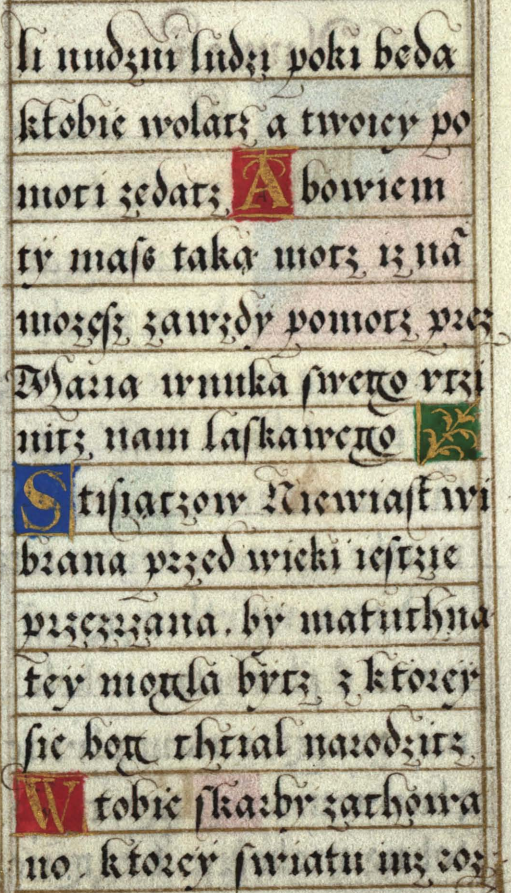 li nudzni ludzi poki beda
ktobie wolatz a twoiey po
moti zedatz A bowiem
ty mass taką motz iz nã
mozesz zawzdy pomotz prez
Maria wnuka swego vtzi
nitz nam laskawego
S tisiątzow Niewiast wi
brana przed wieki iestzie
przezrzana. by matuchna
tey mogla bytz z ktorey
sie bog chtial narodzitz
W tobie skarby zathowa
no. ktorey swiatu im roz